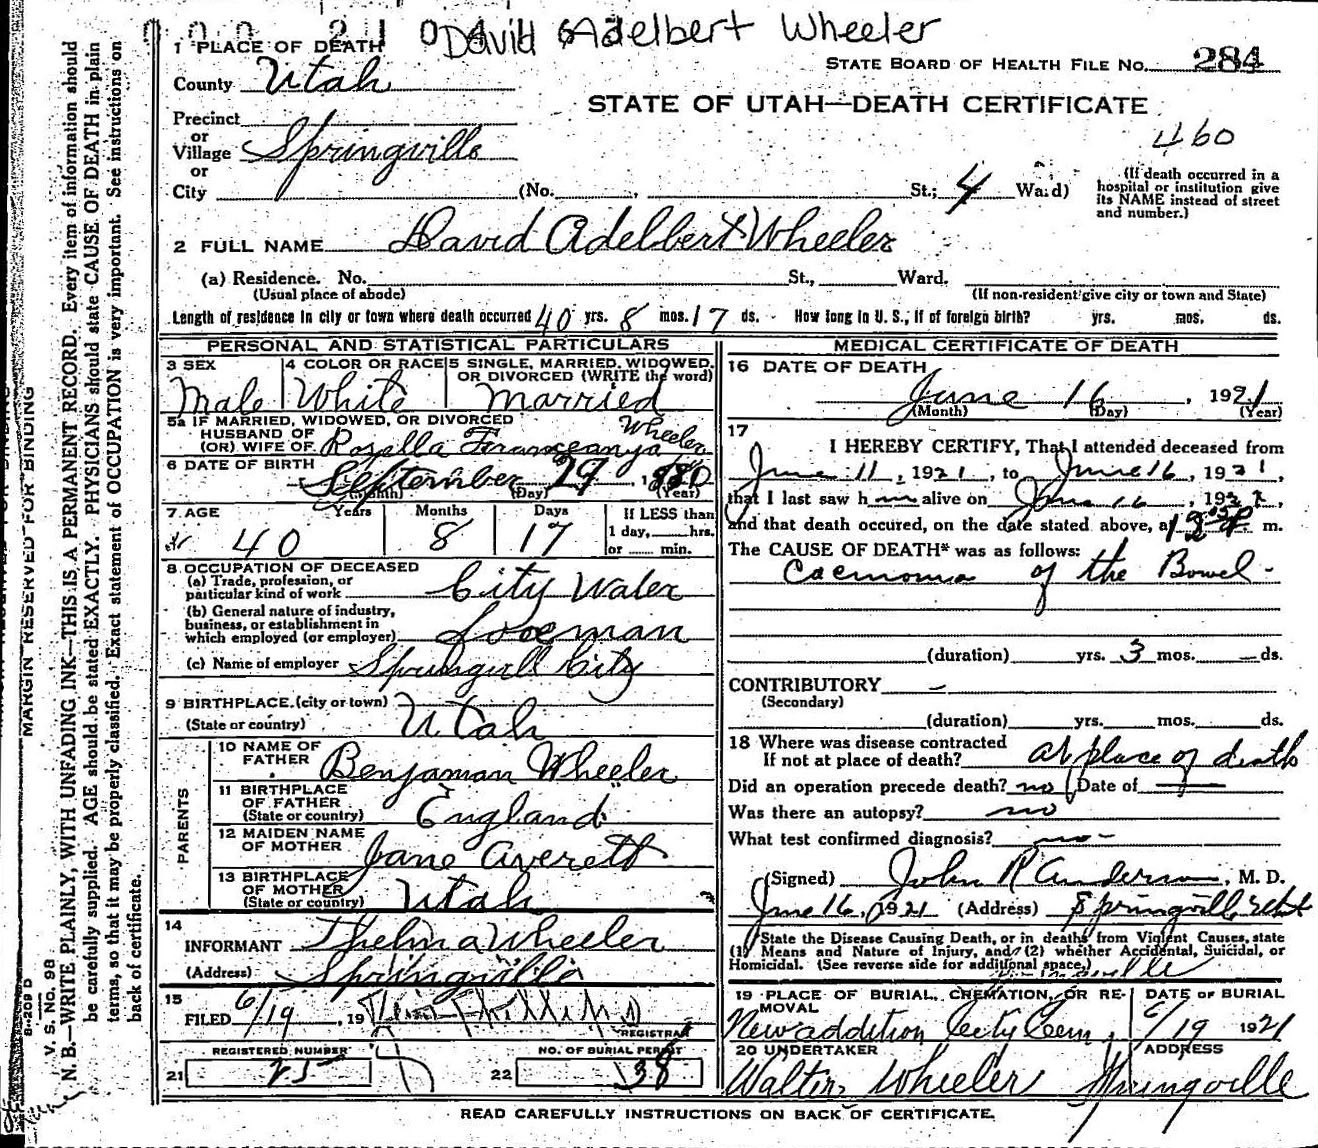 David Adelbert Wheeler
1 PLACE OF DEATH
STATE BOARD OF HEALTH FILE No. 284
County Utah
STATE OF UTAH—DEATH CERTIFICATE
460
Precinct
or
Village Springville
or
City (No. , St.; 4 Ward)
(If death occurred in a hospital or institution give its NAME instead of street and number.)
2 FULL NAME David Adelbert Wheeler
(a) Residence. No. St., Ward.
(Usual place of abode) (If non-resident give city or town and State)
Length of residence in city or town where death occurred 40 yrs. 8 mos. 17 ds. How long in U. S., if of foreign birth? yrs. mos. ds.
PERSONAL AND STATISTICAL PARTICULARS
3 SEX Male
4 COLOR OR RACE White
5 SINGLE, MARRIED, WIDOWED, OR DIVORCED (WRITE the word) married
5a IF MARRIED, WIDOWED, OR DIVORCED
HUSBAND OF
(OR) WIFE OF Wheeler
6 DATE OF BIRTH September 29, 1880
(Month) (Day) (Year)
7 AGE Years 40 Months 8 Days 17
If LESS than
1 day, hrs.
or min.
8 OCCUPATION OF DECEASED
(a) Trade, profession, or particular kind of work City Water
(b) General nature of industry, business, or establishment in which employed (or employer)
(c) Name of employer City
9 BIRTHPLACE (city or town)
(State or country) Utah
PARENTS
10 NAME OF FATHER Benjaman Wheeler
11 BIRTHPLACE OF FATHER (State or country) England
12 MAIDEN NAME OF MOTHER Jane Averett
13 BIRTHPLACE OF MOTHER (State or country) Utah
14
INFORMANT Thelma Wheeler
(Address) Springville
15
FILED 6/19, 19
REGISTRAR
21 REGISTERED NUMBER 25
22 NO. OF BURIAL PERMIT 38
MEDICAL CERTIFICATE OF DEATH
16 DATE OF DEATH
June 16, 1921
(Month) (Day) (Year)
17
I HEREBY CERTIFY, That I attended deceased from
June 11, 1921, to June 16, 1921,
that I last saw h alive on June 16, 192
and that death occured, on the date stated above, at m.
The CAUSE OF DEATH* was as follows:
of the Bowel
(duration) yrs. 3 mos. — ds.
CONTRIBUTORY —
(Secondary)
(duration) yrs. mos. ds.
18 Where was disease contracted
If not at place of death? at place of death
Did an operation precede death? no Date of —
Was there an autopsy? no
What test confirmed diagnosis? no -
(Signed) John R Anderson, M. D.
June 16, 1921 (Address) Springville Utah
State the Disease Causing Death, or in deaths from Violent Causes, state
(1) Means and Nature of Injury, and (2) whether Accidental, Suicidal, or
Homicidal. (See reverse side for additional space.)
19 PLACE OF BURIAL, CREMATION, OR REMOVAL
New addition City Cem.
DATE OF BURIAL
6/19 1921
20 UNDERTAKER
Walter Wheeler
ADDRESS
Springville
READ CAREFULLY INSTRUCTIONS ON BACK OF CERTIFICATE.
MARGIN RESERVED FOR BINDING
S-209 D
V. S. No. 98
N. B.—WRITE PLAINLY, WITH UNFADING INK—THIS IS A PERMANENT RECORD. Every item of information should
be carefully supplied. AGE should be stated EXACTLY. PHYSICIANS should state CAUSE OF DEATH in plain
terms, so that it may be properly classified. Exact statement of OCCUPATION is very important. See instructions on
back of certificate.